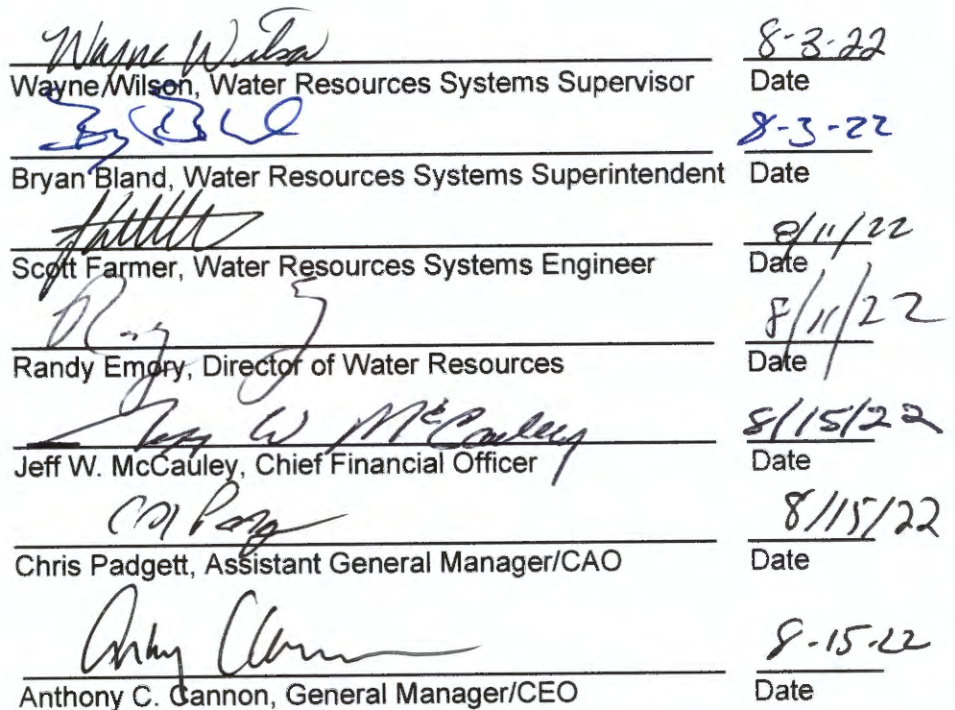 Wayne Wilson 8-3-22
Wayne Wilson, Water Resources Systems Supervisor Date
8-3-22
Bryan Bland, Water Resources Systems Superintendent Date
8/11/22
Scott Farmer, Water Resources Systems Engineer Date
8/11/22
Randy Emory, Director of Water Resources Date
W McCauley 8/15/22
Jeff W. McCauley, Chief Financial Officer Date
8/15/22
Chris Padgett, Assistant General Manager/CAO Date
8-15-22
Anthony C. Cannon, General Manager/CEO Date